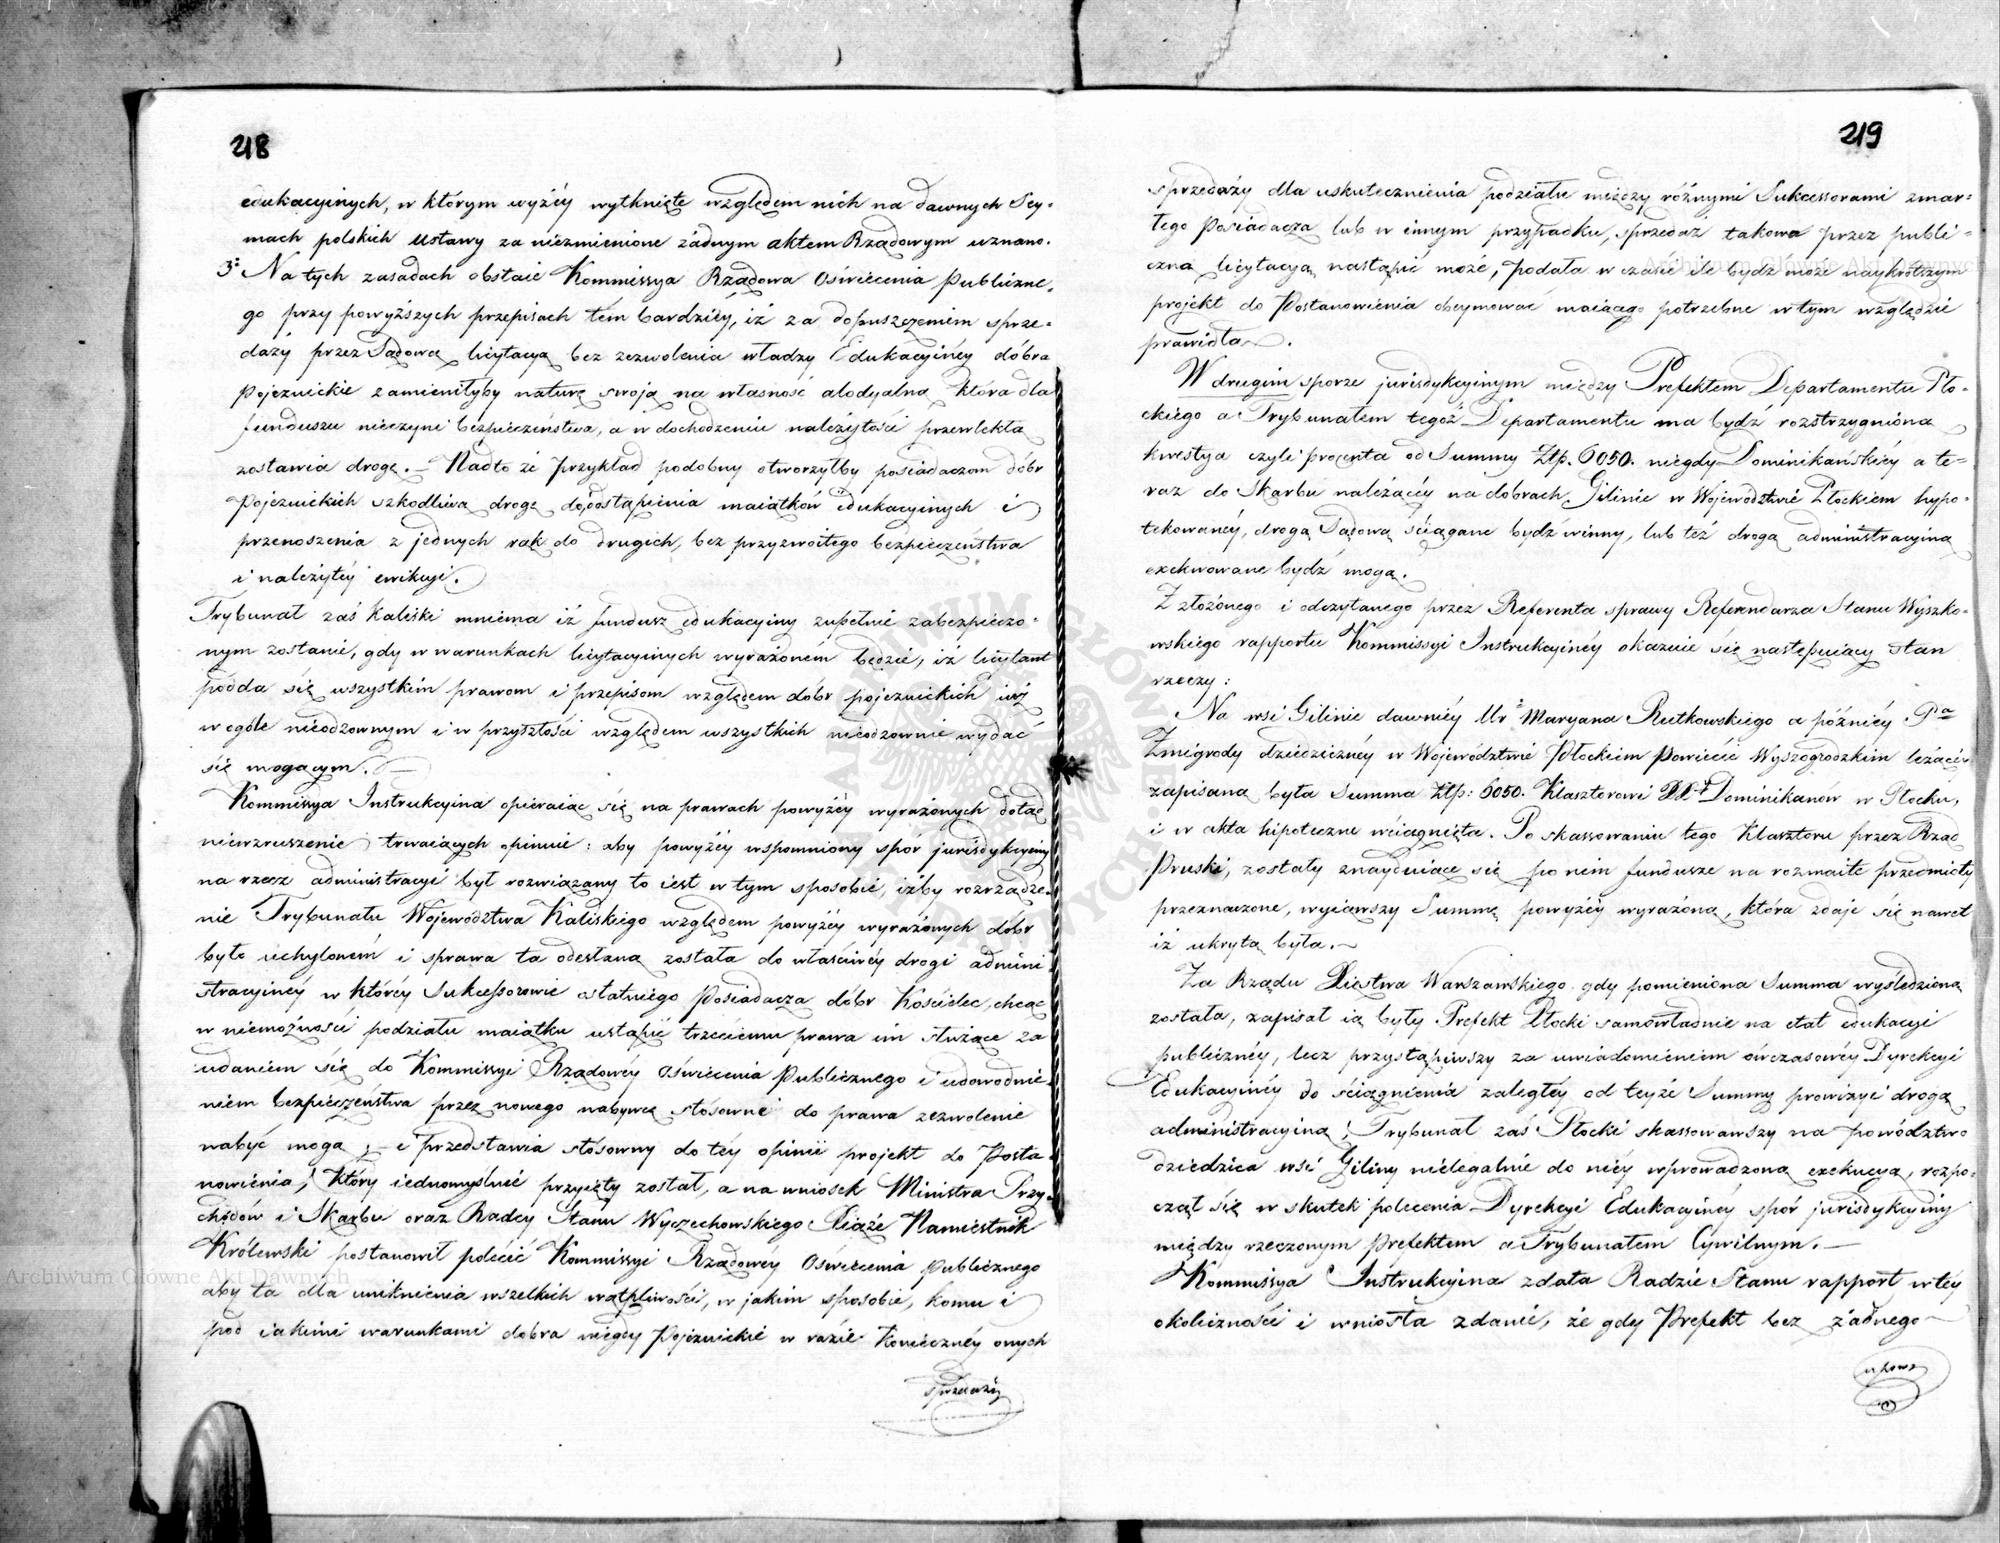 218
edukacyinych, w którym wyżéy wytknięte względem nich na dawnych Sey-
mach polskich Ustawy za niezmienione żadnym aktem Rządowym uznano.
3: Na tych zasadach obstaie Kommissya Rządowa Oświecenia Publiczne-
go przy powyższych przepisach tém bardziéy, iż za dopuszczeniem sprze-
daży przez Sądową licytacyą bez zezwolenia władzy Edukacyinéy dobra
Pojezuickie zamieniłyby naturę swoją na własność alodyalną która dla
funduszu nieczyni bezpieczeństwa, a w dochodzeniu należytości przewlekłą
zostawia drogę. – Nadto że przykład podobny otworzyłby posiadaczom dóbr
Pojezuickich szkodliwą drogę do odstąpienia maiątków edukacyinych i
przenoszenia z jednych rąk do drugich, bez przyzwoitego bezpieczeństwa
i należytéy ewikcyi.
Trybunał zaś Kaliski mniema iż fundusz edukacyiny zupełnie zabezpieczo-
nym zostanie, gdy w warunkach licytacyinych wyrażoném będzie, iż licytant
podda się wszystkim prawom i przepisom względem dóbr pojezuickich iuż
w ogóle nieodzownym i w przyszłości względem wszystkich nieodzownie wydać
się mogącym. –
Kommissya Instrukcyina opieraiąc się na prawach powyżéy wyrażonych dotąd
niewzruszenie trwaiących opiniie: aby powyżéy wspomniony spór jurisdykcyiny
na rzecz administracyi był rozwiązany to iest w tym sposobie, iżby rozrządze-
nie Trybunału Województwa Kaliskiego względem powyżéy wyrażonych dóbr
było uchyloném i sprawa ta odesłaną została do właściwéy drogi admini-
stracyinéy w któréy Sukcessorowie ostatniego Posiadacza dóbr Kościelec, chcąc
w niemożności podziału maiątku ustąpić trzeciemu prawa im służące za
udaniem się do Kommissyi Rządowéy Oświecenia Publicznego i udowodnie-
niem bezpieczeństwa przez nowego nabywcę stósowne do prawa zezwolenie
nabyć mogą; – i przedstawia stósowny do téy opinii projekt do Posta-
nowienia, który iednomyślnie przyięty został, a na wniosek Ministra Przy-
chodów i Skarbu oraz Radcy Stanu Wyczechowskiego Xiąże Namiestnik
Królewski postanowił polecić Kommissyi Rządowéy Oświecenia publicznego
aby ta dla uniknienia wszelkich wątpliwości, w jakim sposobie, komu i
pod iakiemi warunkami dobra niegdy Pojezuickie w razie koniecznéy onych
sprzedaży
219
sprzedaży dla uskutecznienia podziału między różnymi Sukcessorami zmar-
łego Posiadacza lub w innym przypadku, sprzedaż takowa przez publi-
czną licytacyą nastąpić może, podała w czasie ile bydź może naykrótszym
projekt do Postanowienia obeymować maiącego potrzebne w tym względzie
prawidła.
W drugim sporze jurisdykcyinym między Prefektem Departamentu Pło-
ckiego a Trybunałem tegoż Departamentu ma bydź rozstrzygnioną
kwestya czyli procenta od Summy Złp. 6050. niegdy Dominikańskiéy a te-
raz do Skarbu należącéy na dobrach Gilinie w Województwie Płockiem hypo-
tekowanéy, drogą Sądową ściągane bydź winny, lub też drogą administracyiną
exekwowane bydź mogą.
Z złożonego i odczytanego przez Referenta sprawy Referendarza Stanu Wyszko-
wskiego rapportu Kommissyi Instrukcyinéy okazuie się następuiący stan
rzeczy:
Na wsi Gilinie dawniéy Ur. Maryana Rutkowskiego a późniéy Pa
Żmigrody dziedzicznéy w Województwie Płockiem Powiecie Wyszogrodzkim leżącéy
zapisaną była Summa Złp: 6050. Klasztorowi XX. Dominikanów w Płocku,
i w akta hipoteczne wciągnięta. Po skassowaniu tego Klasztoru przez Rząd
Pruski, zostały znayduiące się po nim fundusze na rozmaite przedmioty
przeznaczone, wyiąwszy Summę powyżéy wyrażoną, która zdaje się nawet
iż ukrytą była. –
Za Rządu Xięstwa Warszawskiego gdy pomieniona Summa wyśledzioną
została, zapisał ią były Prefekt Płocki samowładnie na etat edukacyi
publicznéy, lecz przystąpiwszy za uwiadomieniem ówczasowéy Dyrekcyi
Edukacyinéy do ściągnienia zaległéy od teyże Summy prowizyi drogą
administracyiną, Trybunał zaś Płocki skassowawszy na powództwo
dziedzica wsi Giliny nielegalnie do niéy wprowadzoną exekucyą, rozpo-
czął się w skutek polecenia Dyrekcyi Edukacyinéy spór jurisdykcyiny
między rzeczonym Prefektem a Trybunałem Cywilnym. –
Kommissya Instrukcyina zdała Radzie Stanu rapport w téy
okoliczności i wniosła zdanie, że gdy Prefekt bez żadnego
Archiwum Główne Akt Dawnych
Archiwum Główne Akt Dawnych
ARCHIWUM GŁÓWNE AKT DAWNYCH